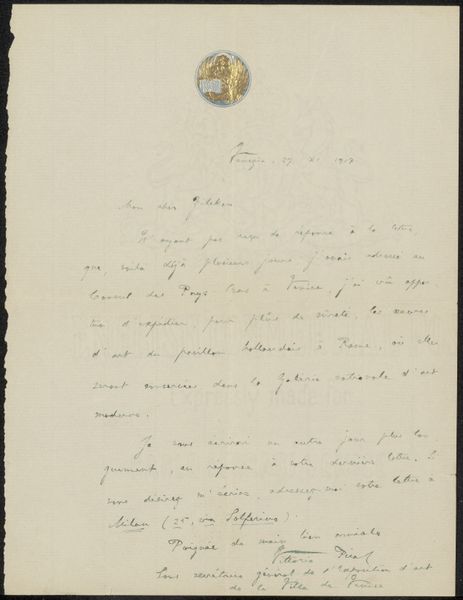 Venezia. 27 XI 1917
Mon cher Zilcken
N'ayant pas reçu de réponse à la lettre,
que, voilà déjà plusieurs jours j'avais adressé au
Consul des Pays-Bas à Venise, j'ai crû oppor-
tun d'expédier, pour plus de sûreté, les œuvres
d'art du pavillon hollandais à Rome, où elles
seront conservées dans la Galerie nationale d'art
moderne.
Je vous écrirai un autre jour plus lon-
guement, en réponse à votre dernière lettre. Si
vous désirez m'écrire, adressez-moi votre lettre à
Milan (25, via Solferino).
Poignée de main bien amicale
Vittorio Pica
secrétaire général de l'Exposition d'art
de la Ville de Venise
expressly made for